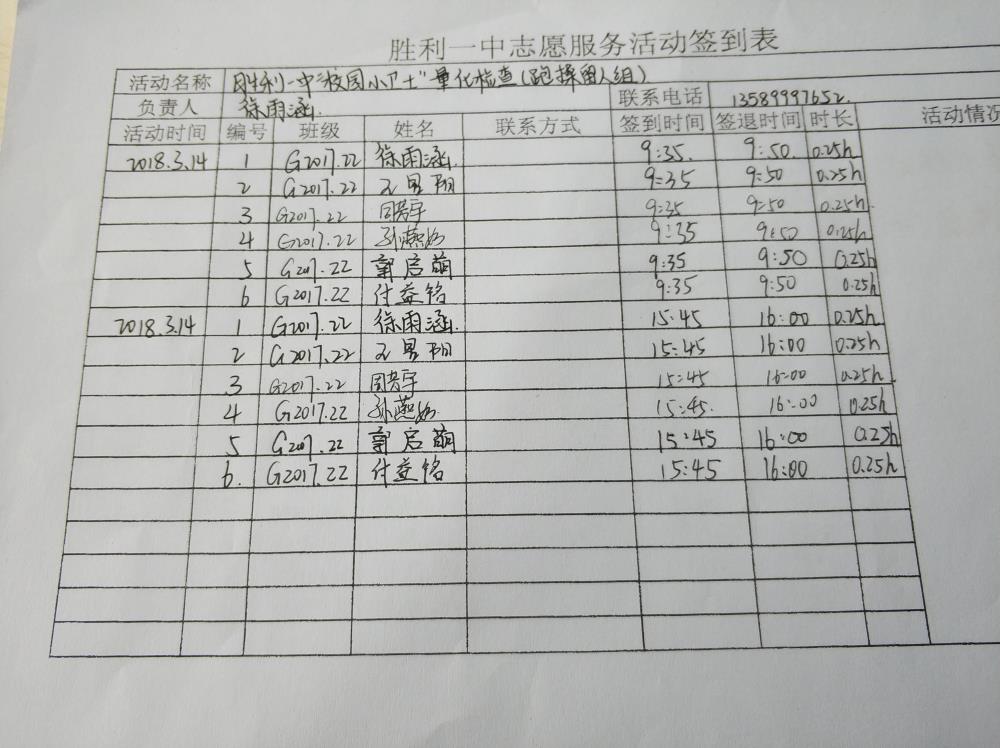 胜利一中志愿服务活动签到表
活动名称 胜利一中"校园小卫士"量化检查(跑操留人组)
负责人 徐雨涵 联系电话 13589997652
活动时间 编号 班级 姓名 联系方式 签到时间 签退时间 时长 活动情况
2018.3.14 1 G2017.22 徐雨涵 9:35 9:50 0.25h
2 G2017.22 9:35 9:50 0.25h
3 G2017.22 9:35 9:50 0.25h
4 G2017.22 9:35 9:50 0.25h
5 G2017.22 郭启萌 9:35 9:50 0.25h
6 G2017.22 付益铭 9:35 9:50 0.25h
2018.3.14 1 G2017.22 徐雨涵 15:45 16:00 0.25h
2 G2017.22 15:45 16:00 0.25h
3 G2017.22 15:45 16:00 0.25h
4 G2017.22 15:45 16:00 0.25h
5 G2017.22 郭启萌 15:45 16:00 0.25h
6. G2017.22 付益铭 15:45 16:00 0.25h